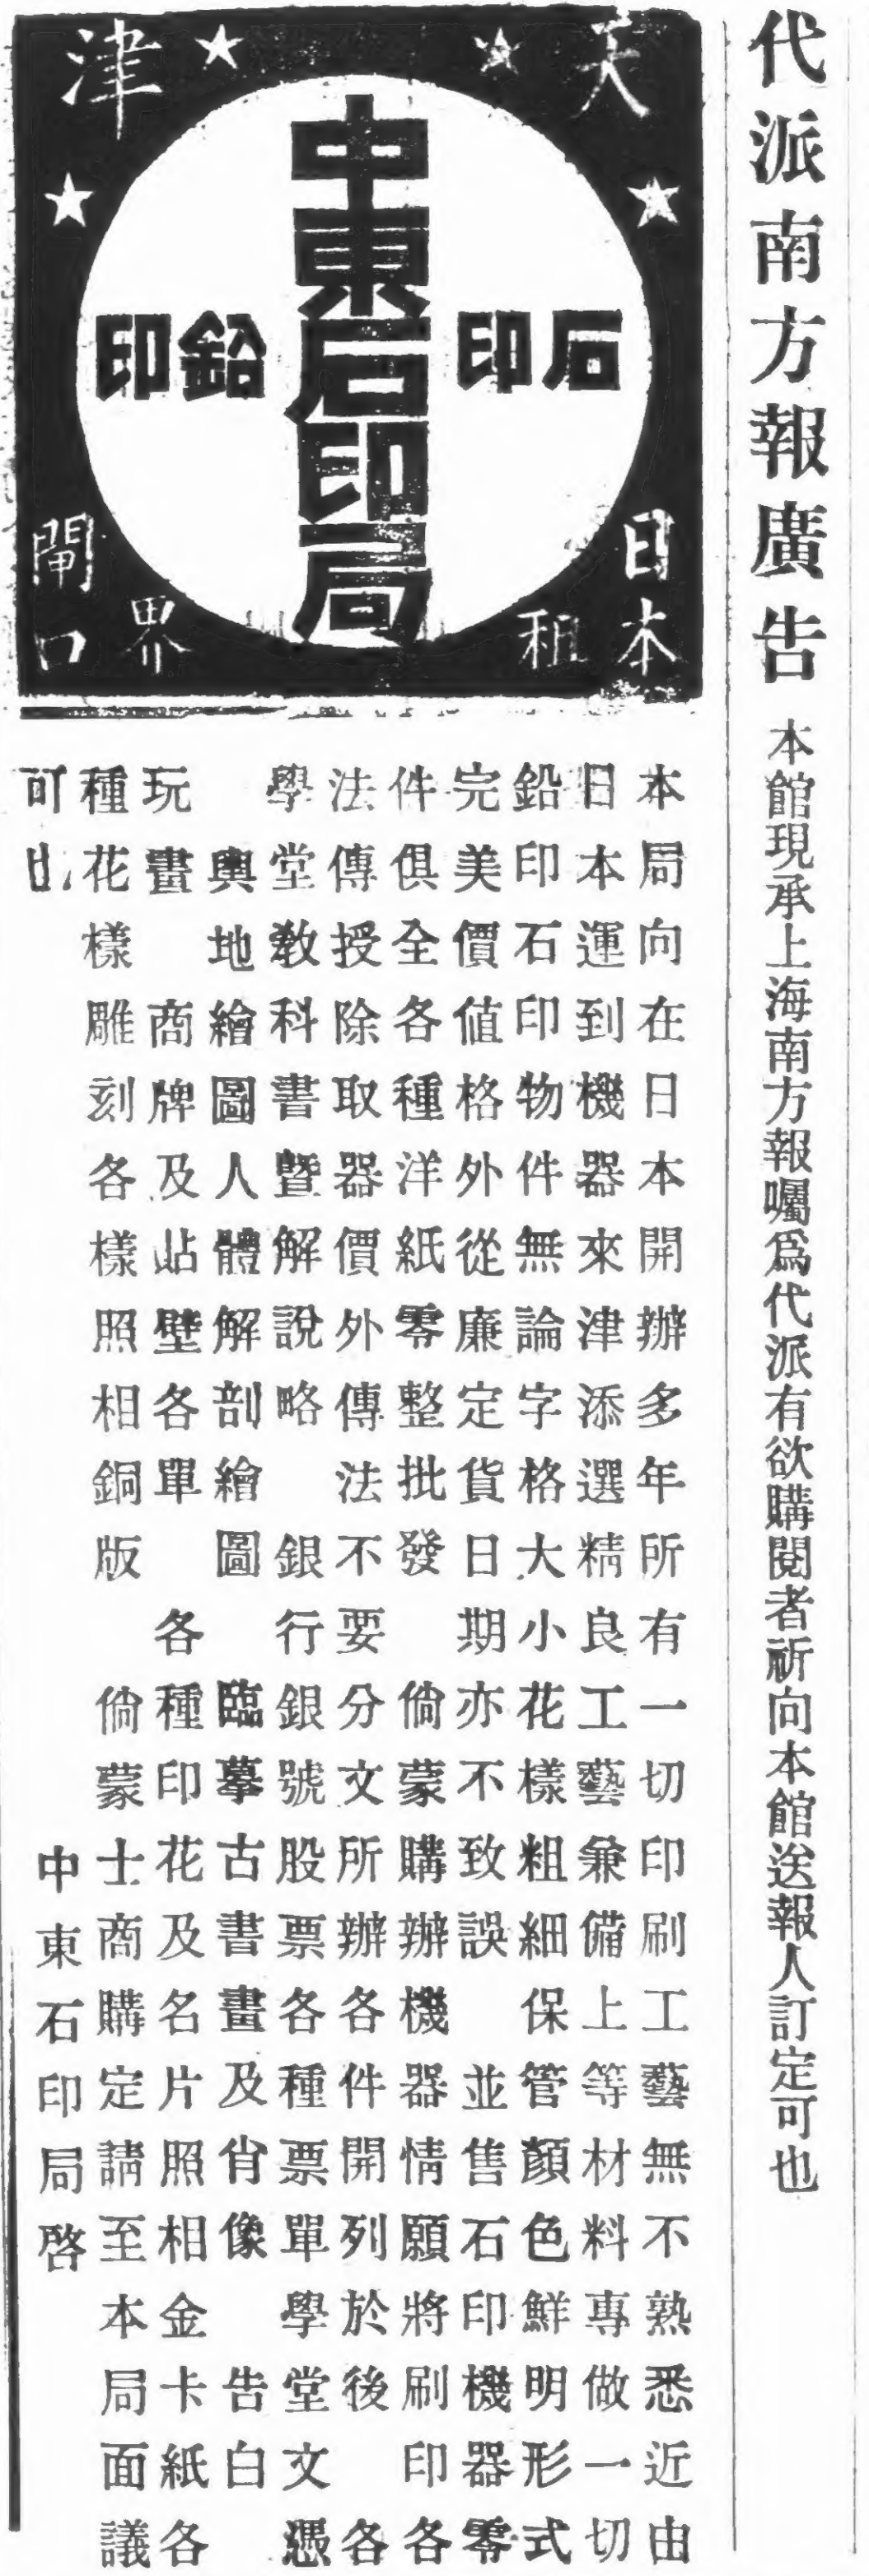 代派南方報廣告 本館現承上海南方報囑爲代派有欲購閱者祈向本館送報人訂定可也
天津
日本租界
閘口
中東石印局
石印
鉛印
本局向在日本開辦多年所有一切印刷工藝無不熟悉近由
日本運到機器來津添選精良工藝兼備上等材料專做一切
鉛印石印物件無論字格大小花樣粗細保管顏色鮮明形式
完美價值格外從廉定貨日期亦不致誤 並售石印機器零
件俱全各種洋紙零整批發 倘蒙購辦機器情願將刷印各
法傳授除取器價外傳法不要分文所辦各件開列於後 各
學堂教科書暨解說略 銀行銀號股票各種票單學堂文憑
輿地繪圖人體解剖繪圖 臨摹古書畫及肖像 告白
玩畫 商牌及贴壁各單 各種印花及名片照相金卡紙各
種花樣雕刻各樣照相銅版 倘蒙士商購定請至本局面議
可也 中東石印局啓